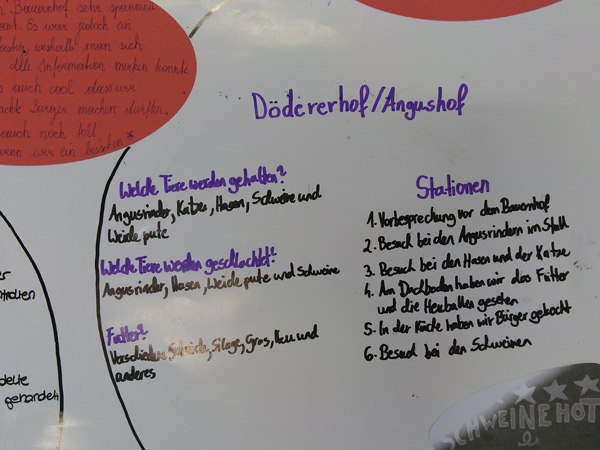 Bauernhof sehr spannend
Es war jedoch ein
weshalb man sich
alle Information merken konnte
auch cool dass wir
Burger machen durften
auch noch toll
wenn wir ein bisschen
Dödererhof/Angushof
Welche Tiere werden gehalten?
Angusrinder, Katze, Hasen, Schweine und
Weide pute
Welche Tiere werden geschlachtet?
Angusrinder, Hasen, Weide pute und Schweine
Futter?
Verschiedene Silage, Gras, Heu und
anderes
Stationen
1. Vorbesprechung vor dem Bauernhof
2. Besuch bei den Angusrindern im Stall
3. Besuch bei den Hasen und der Katze
4. Am Dachboden haben wir das Futter
und die Heuballen gesehen
5. In der Küche haben wir Bürger gekocht
6. Besuch bei den Schweinen
SCHWEINE HOT